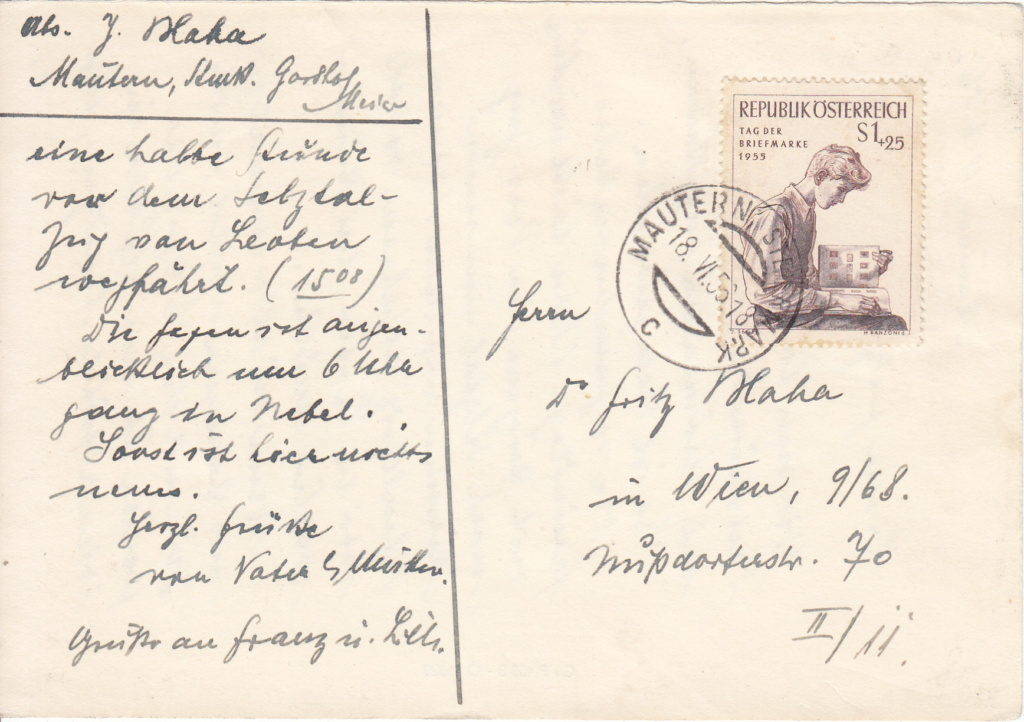 Abs. J. Blaha
Mautern, Stmk. Gasthof
Meier
eine halbe Stunde
vor dem Selztal-
zug von Leoben
wegfährt. (15 08)
Die Gegend ist augen-
blicklich um 6 Uhr
ganz in Nebel.
Sonst ist hier nichts
neues.
Herzl. Grüße
von Vater & Mutter.
Grüße an Franz u. Lilli.
REPUBLIK ÖSTERREICH
S1+25
TAG DER
BRIEFMARKE
1955
H. RANZONI
MAUTERN, STEIERMARK
18. VI. 56 18
C
Herrn
Dr Fritz Blaha
in Wien, 9/68.
Nußdorferstr. 70
II/11.